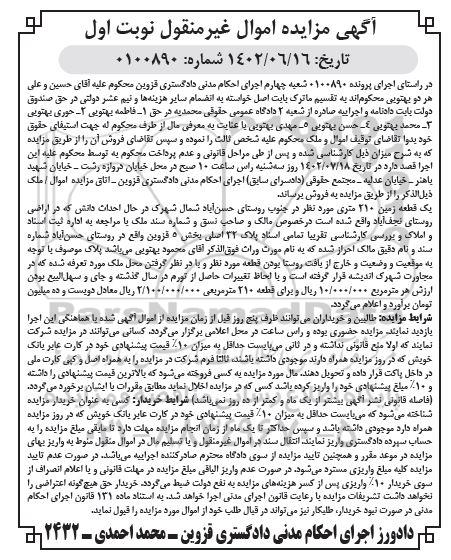 آگهی مزایده اموال غیرمنقول نوبت اول
تاریخ: ۱۴۰۲/۰۶/۱۶ شماره: ۰۱۰۰۸۹۰
در راستای اجرای پرونده ۰۱۰۰۸۹۰ شعبه چهارم اجرای احکام مدنی دادگستری قزوین محکوم علیه آقای حسین و علی
هر دو بهتویی محکوم‌اند به تقسیم ماترک بابت اصل خواسته به انضمام سایر هزینه‌ها و نیم عشر دولتی در حق صندوق
دولت بابت دادنامه و اجراییه صادره از شعبه ۲ دادگاه عمومی حقوقی محمدیه در حق ۱ـ فاطمه بهتویی ۲ـ حوری بهتویی
۳ـ محمد بهتویی ۴ـ حسن بهتویی ۵ـ مهدی بهتویی با عنایت به معرفی مال از طرف محکوم له جهت استیفای حقوق
خود بدوا تقاضای توقیف اموال و ملک محکوم علیه شخص ثالث را نموده و سپس تقاضای فروش آن را از طریق مزایده
که به شرح میزان ذیل کارشناسی شده و پس از طی مراحل قانونی و عدم پرداخت محکوم به توسط محکوم علیه این
اجرا قصد دارد در تاریخ ۱۴۰۲/۰۷/۱۸ روز سه‌شنبه راس ساعت ۱۰ صبح در محل خیابان دروازه رشت ـ خیابان شهید
باهنر ـ خیابان عدلیه ـ مجتمع حقوقی (دادسرای سابق) اجرای احکام مدنی دادگستری قزوین ـ اتاق مزایده اموال / ملک
ذیل‌الذکر را از طریق مزایده به فروش برساند.
یک قطعه زمین ۲۱۰ متری مورد نظر در جنوب روستای حسن‌آباد شمال شهرک در حال احداث دانش که در اراضی
روستای نجف‌آباد واقع شده است درخصوص مالک و صاحب نسق و شماره سند ملک با مراجعه به اداره ثبت اسناد
و املاک و بررسی کارشناسی تقریبا تمامی اسناد پلاک ۲۲ اصلی بخش ۵ قزوین واقع در روستای حسن‌آباد شماره
سند و نام دقیق مالک احراز شده که به نام مورث وراث فوق‌الذکر آقای محمود بهتویی می‌باشد پلاک موصوف با توجه
به موقعیت و وضعیت و خارج از بافت روستا بودن قطعه مورد نظر و با در نظر گرفتن محل ملک مورد تعرفه شده که در
مجاورت شهرک اندیشه قرار گرفته است و با لحاظ تغییرات حاصل از تورم در سال گذشته و جای و سهل‌البیع بودن
ارزش هر مترمربع ۱۰/۰۰۰/۰۰۰ ریال و برای قطعه ۲۱۰ مترمربعی ۲/۱۰۰/۰۰۰/۰۰۰ ریال معادل دویست و ده میلیون
تومان برآورد و اعلام می‌گردد.
شرایط مزایده: طالبین و خریداران می‌توانند ظرف پنج روز قبل از زمان مزایده از اموال آگهی شده با هماهنگی این اجرا
بازدید نمایند. مزایده حضوری بوده و راس ساعت در محل اعلامی برگزار می‌گردد. کسانی می‌توانند در مزایده شرکت
نمایند که اولا منع قانونی نداشته و در ثانی می‌بایست حداقل به میزان ۱۰٪ قیمت پیشنهادی خود در کارت عابر بانک
خویش که در روز مزایده همراه دارند موجودی داشته باشند. ثالثا فرم شرکت در مزایده را به همراه اصل و کپی کارت ملی
در داخل پاکت قرار داده و تحویل دهند. مال مورد مزایده به کسی فروخته می‌شود که بالاترین قیمت پیشنهادی را داشته
و ۱۰٪ مبلغ پیشنهادی خود را واریز کرده باشد کسی که در مزایده اخلال نماید مطابق مقررات با ایشان برخورد می‌گردد.
(فاصله قانونی نشر آگهی بیشتر از یک ماه و کمتر از ده روز نمی‌باشد) شرایط خریدار: کسی به عنوان خریدار مزایده
شناخته می‌شود که می‌بایست حداقل به میزان ۱۰٪ قیمت پیشنهادی خود در کارت عابر بانک خویش که در روز مزایده
همراه دارد موجودی داشته باشد و سپس حداکثر تا یک ماه از زمان انجام مزایده مهلت دارد تا مابقی مبلغ مزایده را به
حساب سپرده دادگستری واریز نمایند. انتقال سند در اموال غیرمنقول و یا تسلیم مال در اموال منقول منوط به واریز بهای
مزایده در موعد مقرر و همچنین تایید مزایده از سوی دادگاه محترم صادرکننده اجراییه می‌باشد. در صورت عدم تایید
مزایده کلیه مبلغ واریزی مسترد می‌شود. در صورت عدم واریز الباقی مبلغ مزایده در مهلت قانونی و یا اعلام انصراف از
سوی خریدار ۱۰٪ واریزی پس از کسر هزینه‌های مزایده به نفع دولت ضبط می‌گردد. خریدار حق هیچ‌گونه اعتراضی را
نخواهد داشت تشریفات مزایده با رعایت قانون اجرای مدنی اجرا خواهد شد. به استناد ماده ۱۳۱ قانون اجرای احکام
مدنی در صورت نبود خریدار، طلبکار نیز می‌تواند در قبال طلب خود از اموال مورد مزایده را قبول نماید.
دادورز اجرای احکام مدنی دادگستری قزوین ـ محمد احمدی ـ ۲۴۲۲